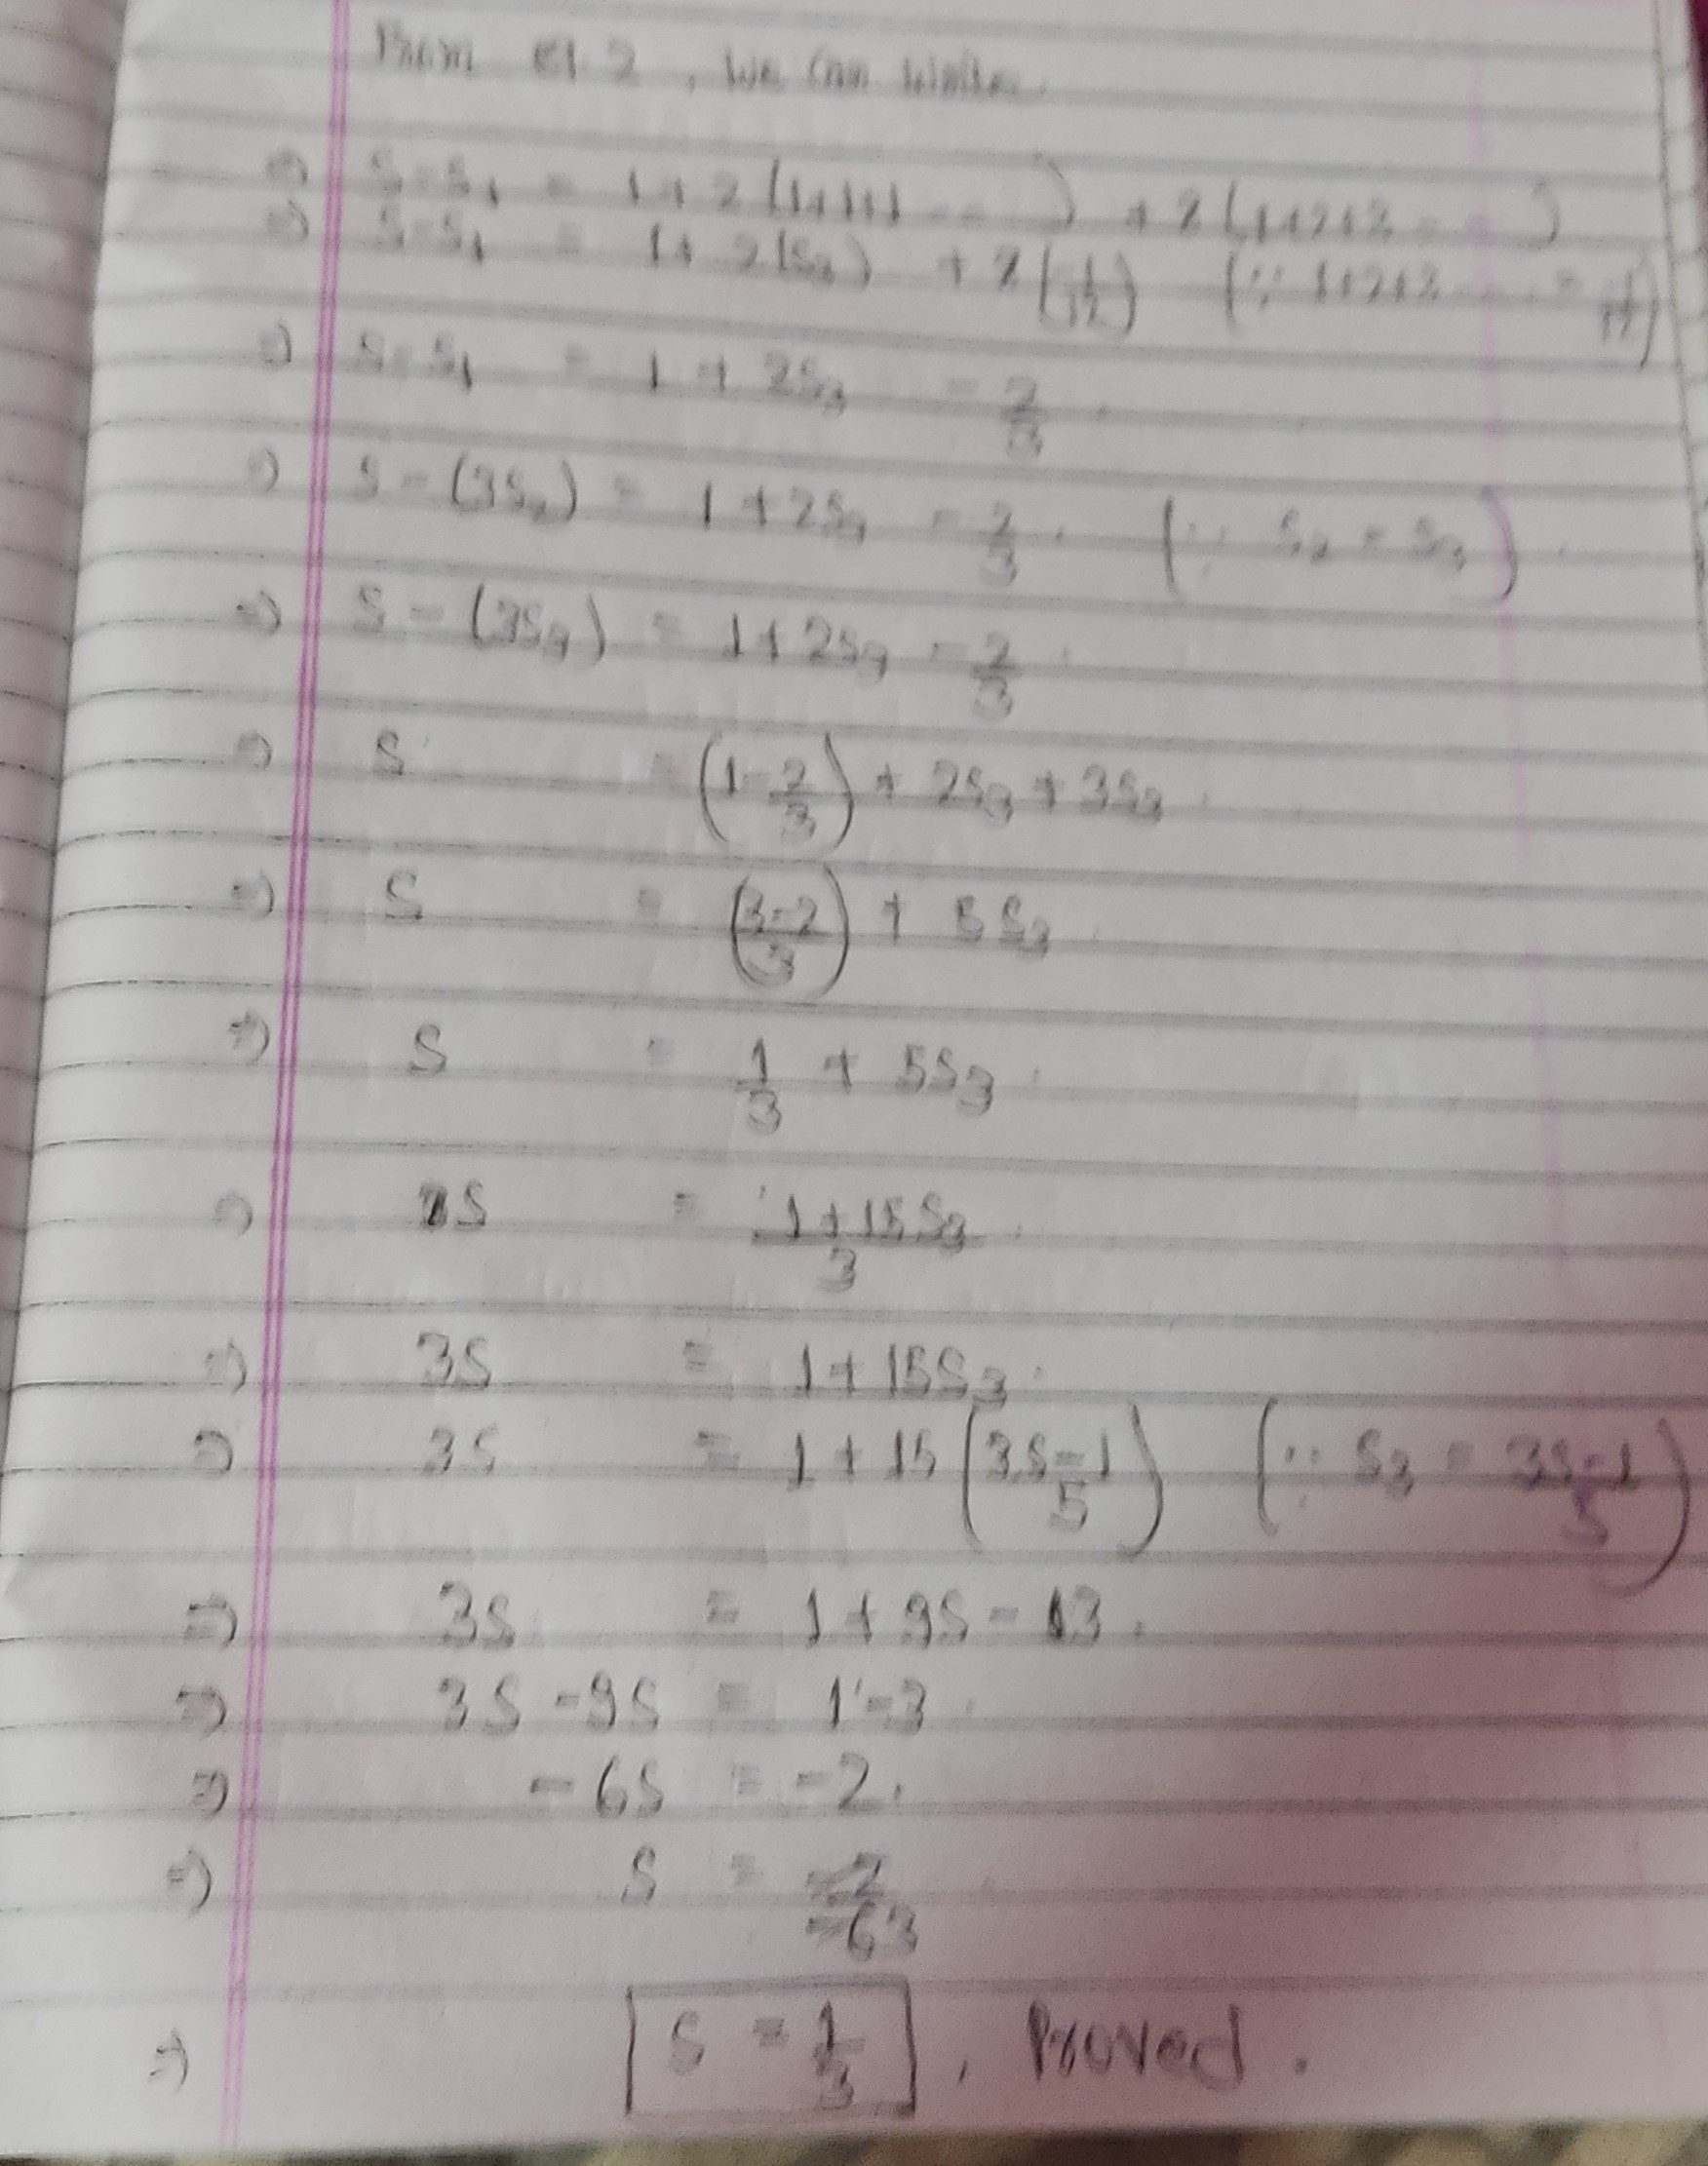 From eq. 2, We can write.
⇒ S-S₁ = 1+2(1+1+1 ....) + 8(1+2+3 ....)
⇒ S-S₁ = 1+2(S₃) + 8(-1/12) (∵ 1+2+3 .... = -1/12)
⇒ S-S₁ = 1+2S₃ - 2/3.
⇒ S-(3S₂) = 1+2S₃ - 2/3. (∵ S₂ = S₃).
⇒ S-(3S₃) = 1+2S₃ - 2/3.
⇒ S = (1-2/3) + 2S₃ + 3S₃.
⇒ S = (3-2/3) + 5S₃.
⇒ S = 1/3 + 5S₃.
⇒ S = 1+15S₃/3.
⇒ 3S = 1+15S₃.
⇒ 3S = 1+15(3S-1/5) (∵ S₃ = 3S-1/5)
⇒ 3S = 1+9S-3.
⇒ 3S-9S = 1-3.
⇒ -6S = -2.
⇒ S = -2/-63
⇒ S = 1/3. Proved.